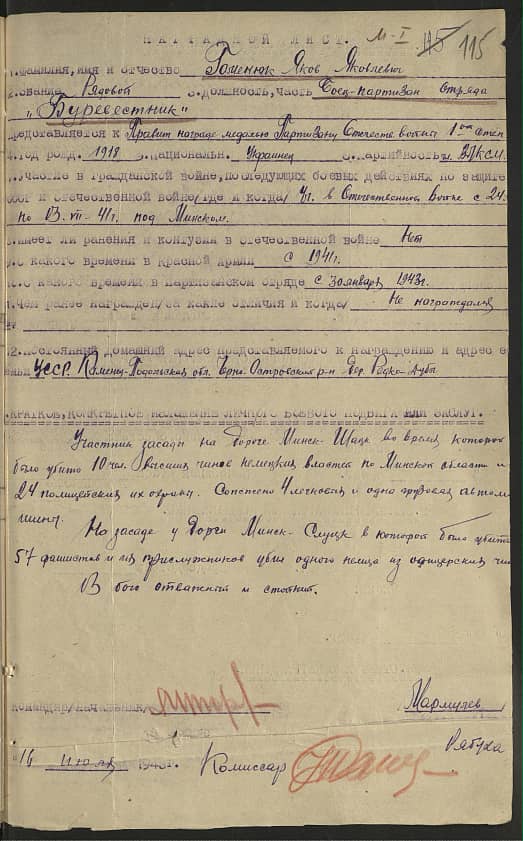 М-I 115 115
НАГРАДНОЙ ЛИСТ.
1.Фамилия, имя и отчество Гоменюк Яков Яковлевич
2.Звание Рядовой 3.Должность, часть Боец-партизан отряда
„Буревестник"
Представляется к Правит награде медалью Партизану Отечеств войны 1ой степ
4.Год рожд. 1918 5.Национальн. Украинец 6.Партийность чл. ВЛКСМ.
7.Участие в гражданской войне, последующих боевых действиях по защите
СССР и отечественной войне/где и когда/ Уч. в Отечественной войне с 24
по 13-VII-41г. под Минском.
8.Имеет ли ранения и контузии в отечественной войне Нет
9.С какого времени в Красной Армии с 1941г.
10.С какого времени в партизанском отряде с 30 января 1943г.
11.Чем ранее награжден/за какие отличия и когда/ Не награждался
12.Постоянный домашний адрес представляемого к награждению и адрес е
семьи УССР. Каменец-Подольская обл. Черно-Островский р-н дер Редко-дубы
Краткое, конкретное изложение личного боевого подвига или заслуг.
Участник засады на дороге Минск-Шацк во время которой
было убито 10 чел. высших чинов немецких властей по Минской области и
24 полицейских их охраны. Сопсжено 4 легковых и одна грузовая автом
шины.
На засаде у дороги Минск-Слуцк в которой было убито
57 фашистов и их прислужников убил одного немца из офицерских чи
В бою отважный и стойкий.
Командир/начальник/ Мармулев
Рябуха
"16 июля 1943г. Комиссар